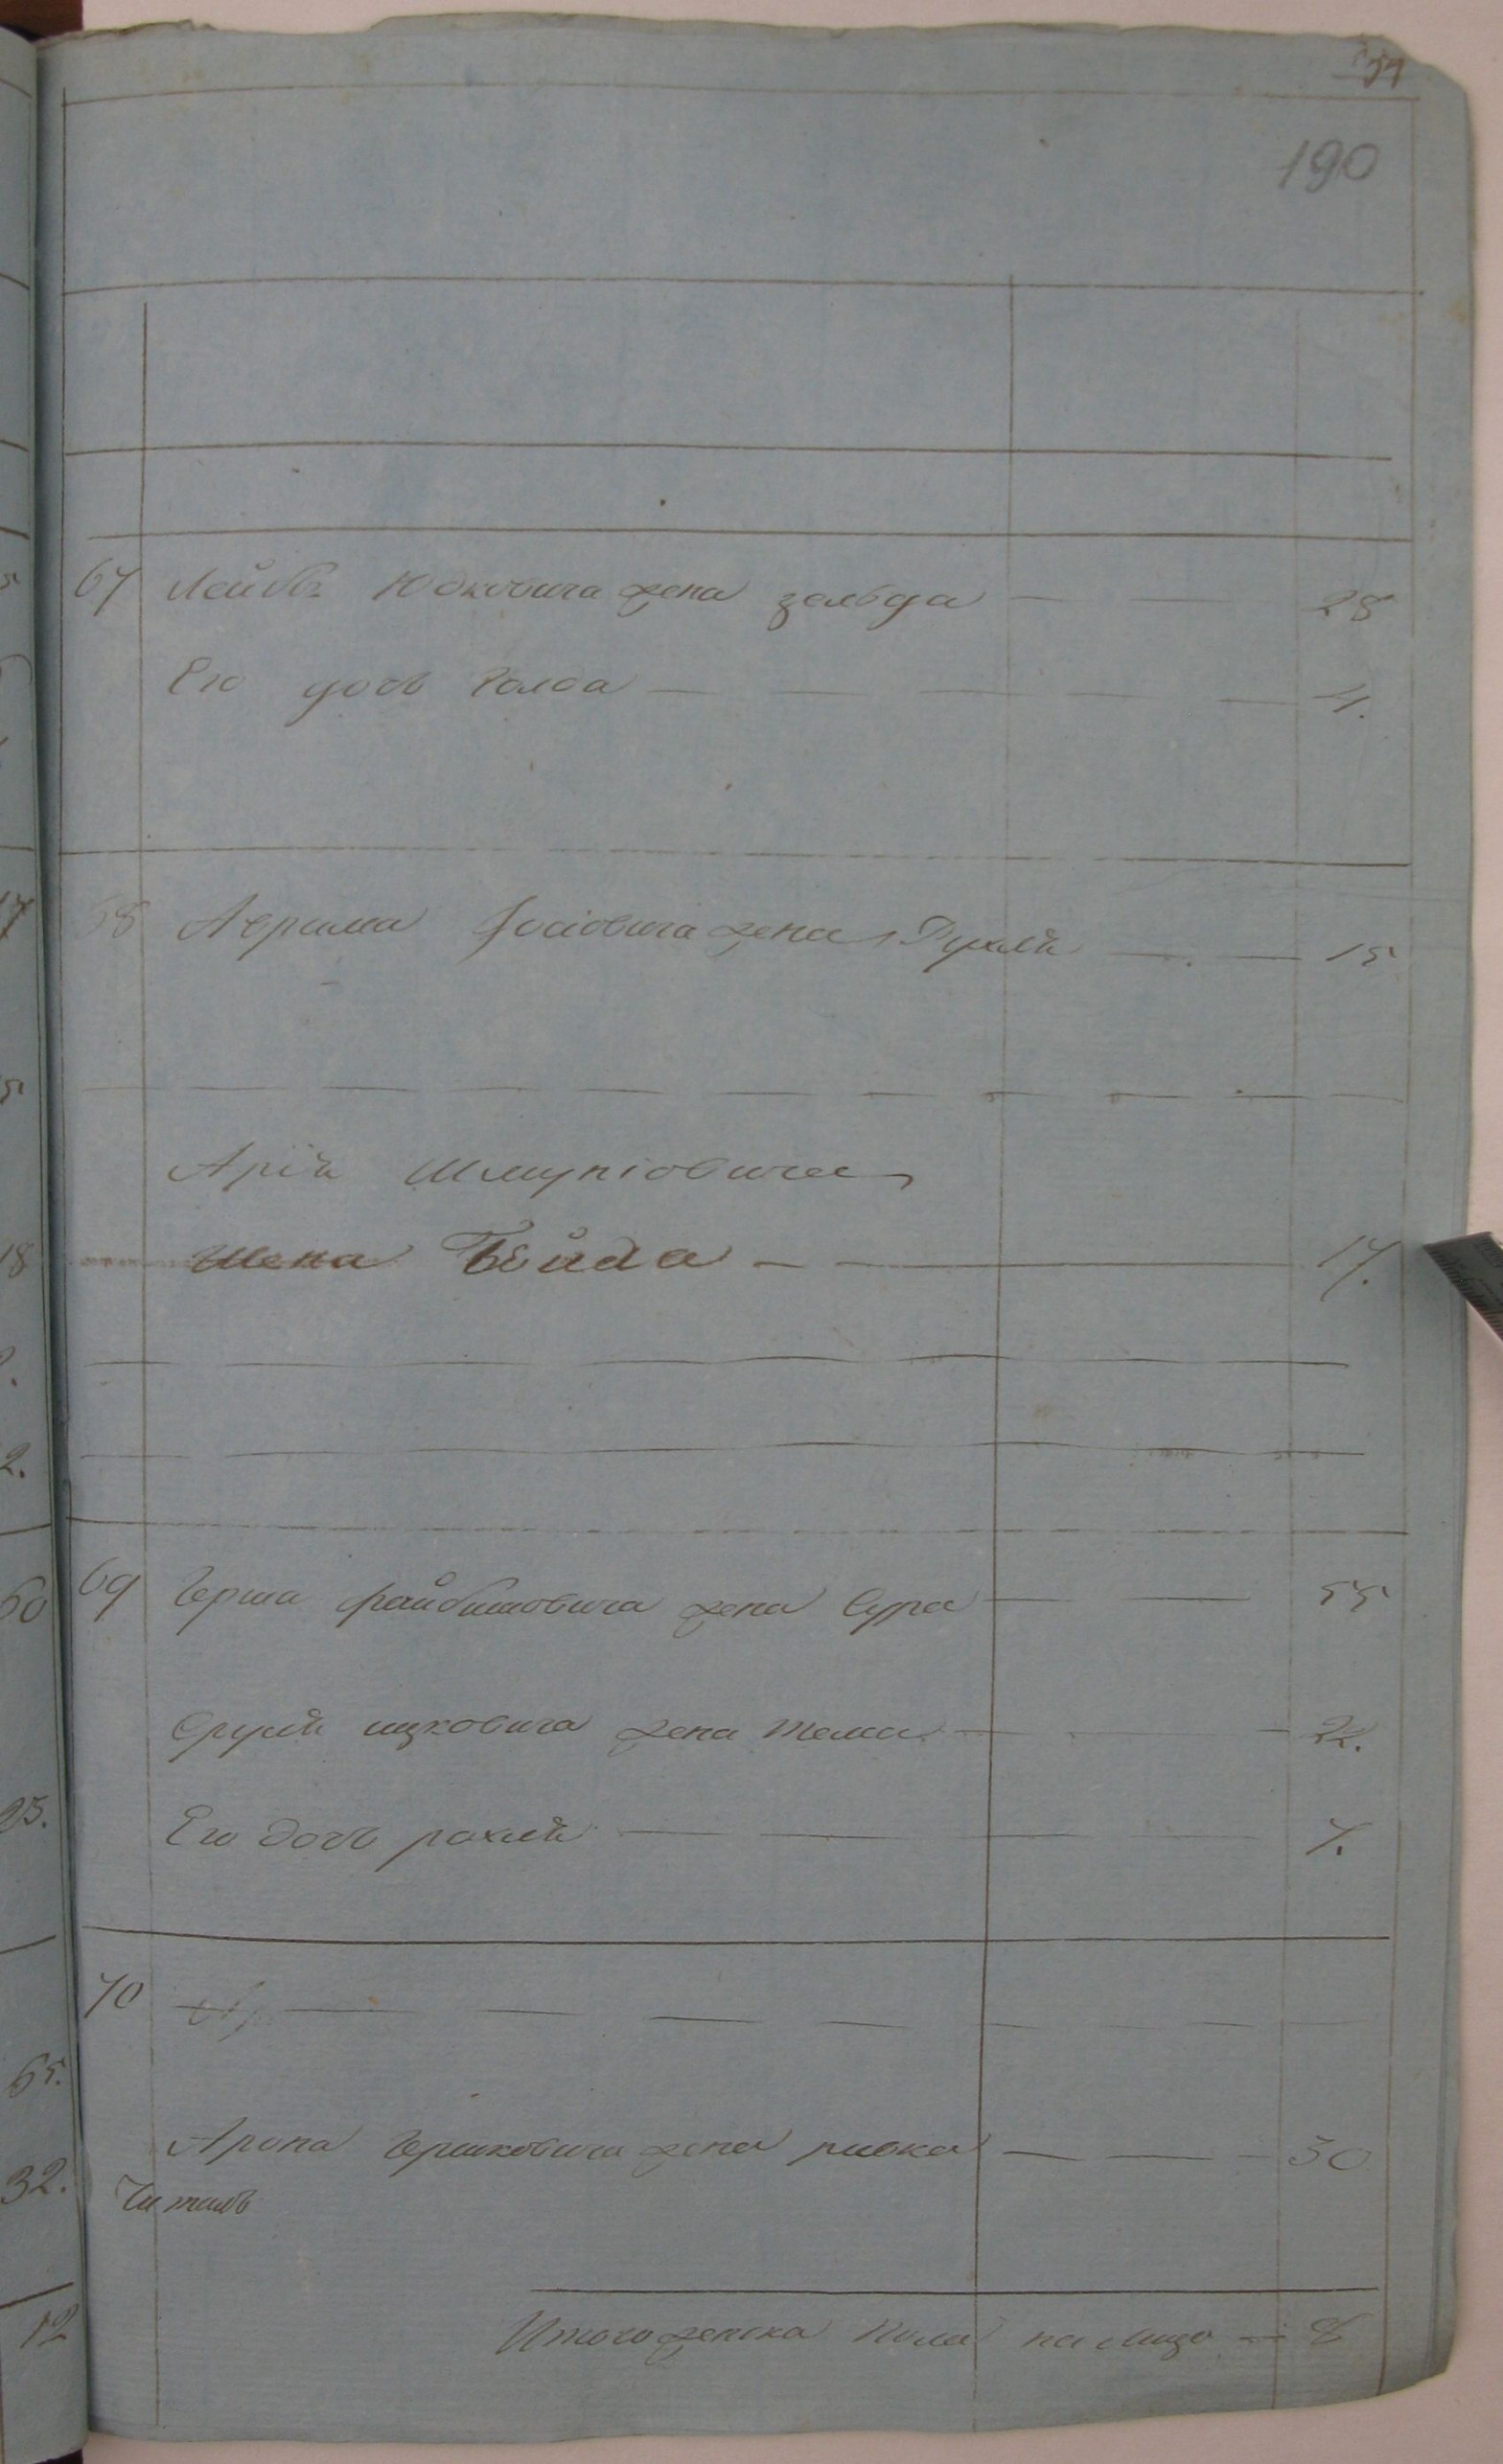 54
190
67 Лейбы Юдковича жена зельда 28
Его дочь Голда 4.
68 Аврама Іосіовича жена Рухля 15
Арія Шмуніовича
Жена Бейла 17.
69 Герша файбишовича жена Сура 55
Сруля ицковича жена тема 22.
Его дочь рахля 7.
70
Арона Гершковича жена ривка 30
Читалъ
Итого женска пола на лицо 8